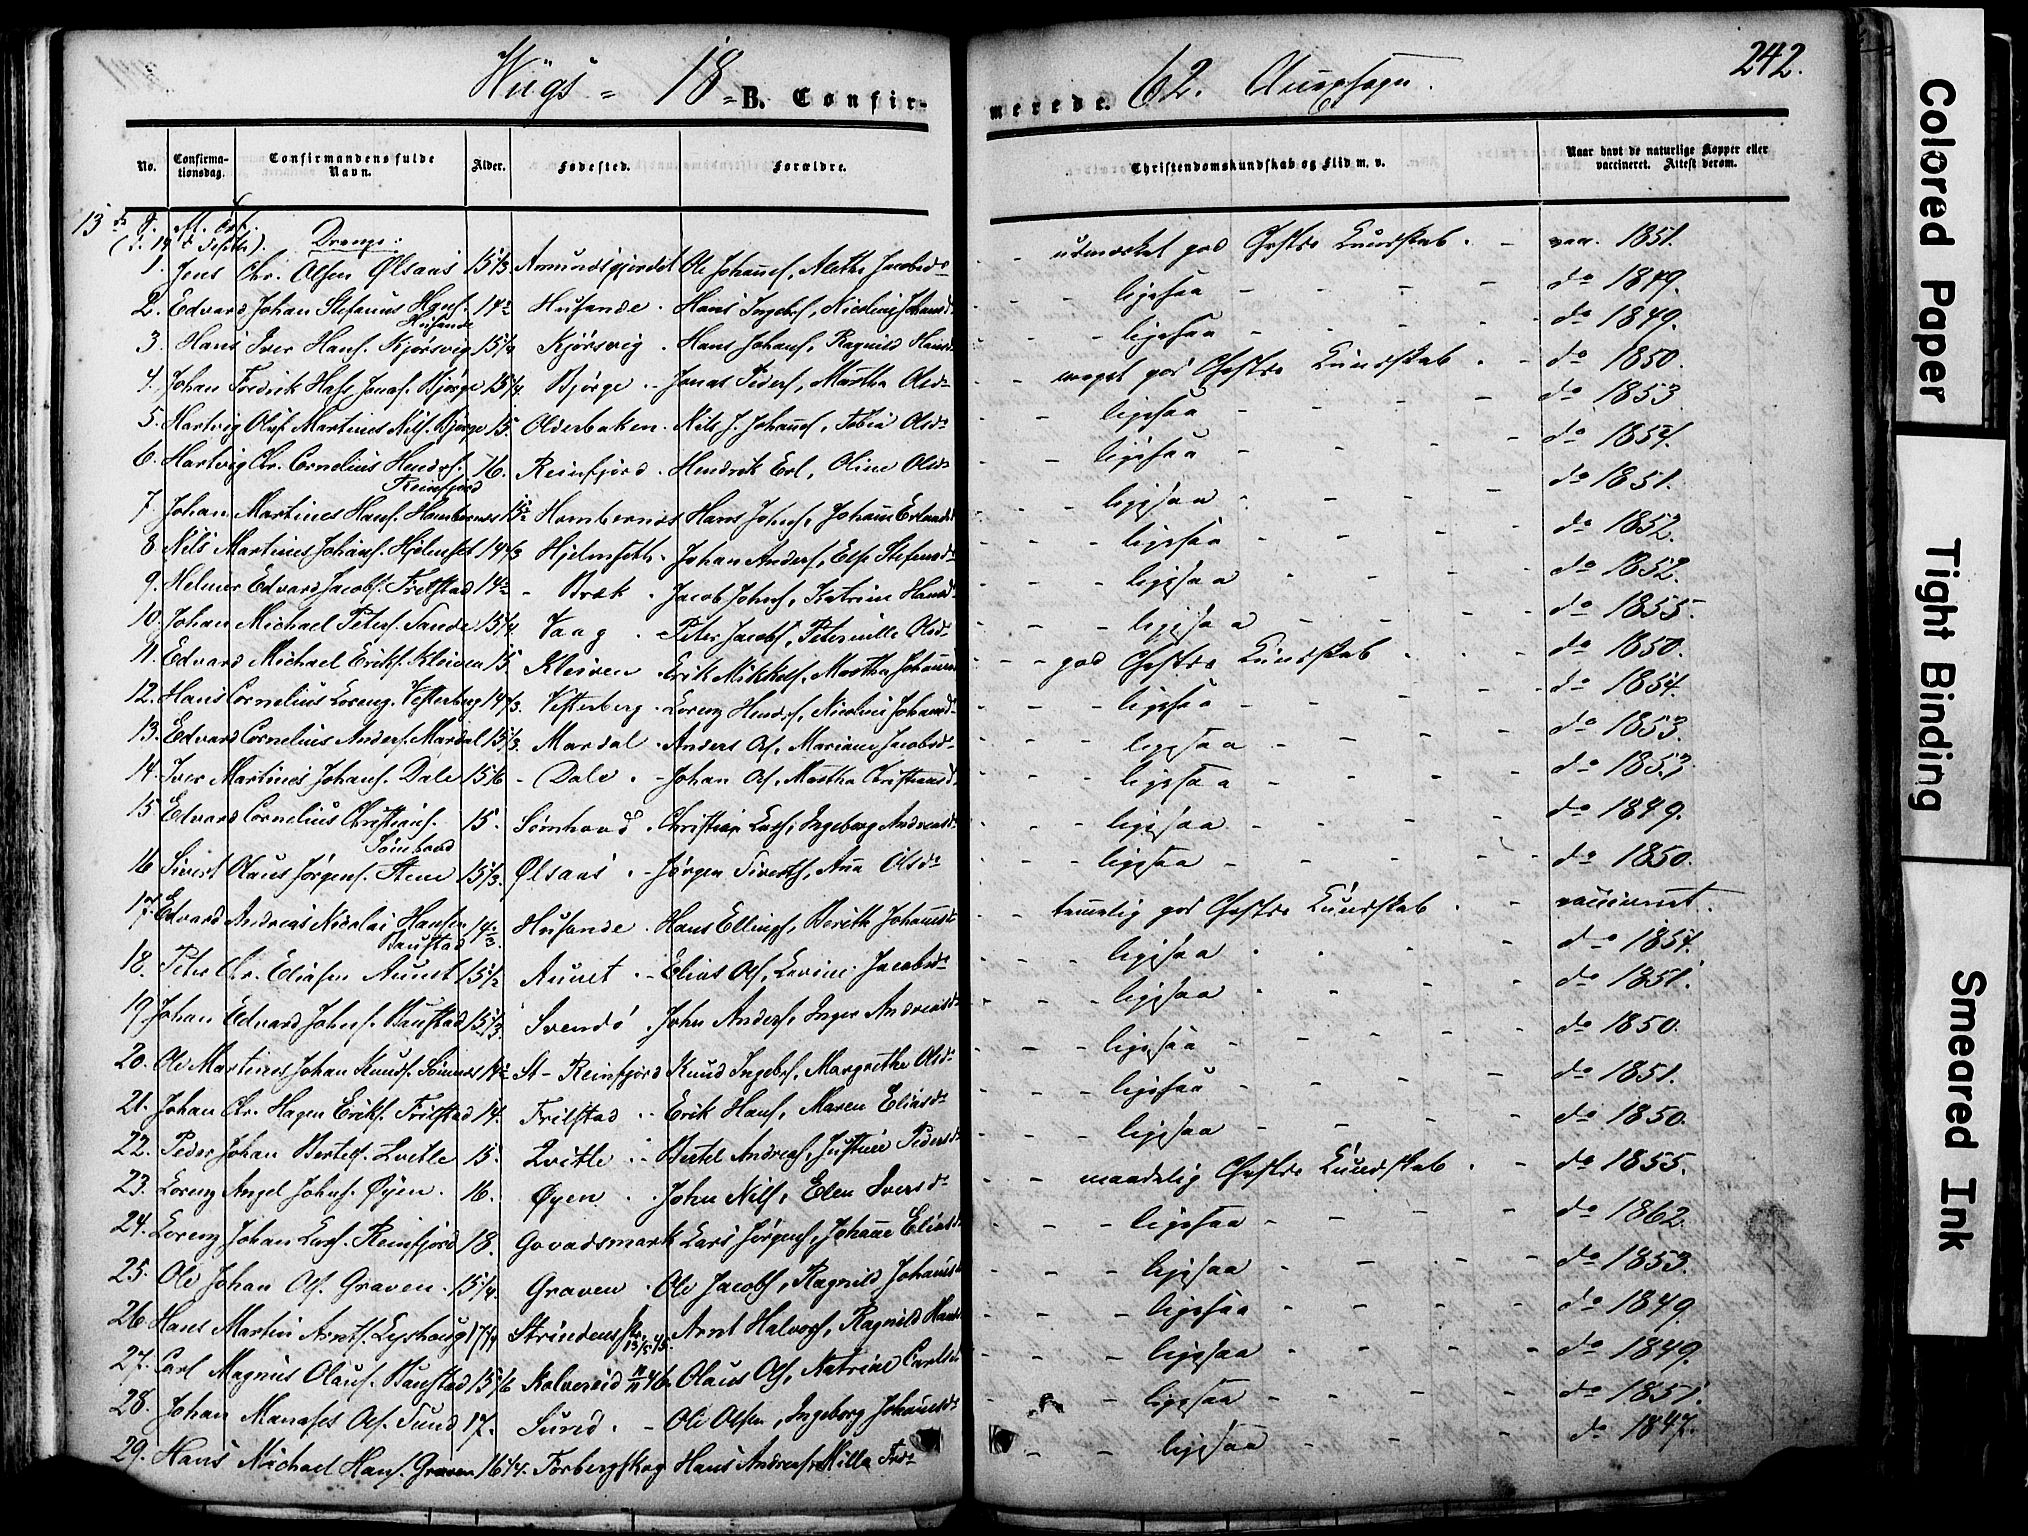 242.
Viigs - 18 B. Confir-
merede. 62.
No. Confirma-tionsdag. Confirmandens fulde Navn. Alder. Fødested. Forældre.
Christendomskundskab og Flid m. v. Naar havt de naturlige Kopper eller vaccineret. Attest derom.
Drenge.
1. Jens Chr. Olsen Ølsaas 15 1/3 Amundsgjerdet Ole Johans., Alethe Jacobsd. udmærket god Chrstds Kundskab - vac. 1851.
2. Edvard Johan Stefanus Hans. Husande 14 Husande Hans Ingebr., Nicoline Johansd. ligesaa do 1849.
3. Hans Iver Hans. Kjørsvig 15 1/4 Kjørsvig Hans Johans., Ragnild Hansd. ligesaa do 1849.
4. Johan Fredrik Jonas. Bjørge 15 1/4 Bjørge Jonas Peders., Martha Olsd. meget god Chrstds Kundskab do 1850.
5. Hartvig Oluf Martines Nils. Bjørge 15. Olderbaken Nils J. Johans., Tobia Olsd. ligesaa do 1853
6. Hartvig Chr. Cornelius Hendrs. Reinfjord 16. Reinfjord Hendrik Erl., Oline Olsd. ligesaa do 1854.
7. Johan Martines Hans. Hombornes 15 Hombornes Hans Johns., Johanna Erlandsd. ligesaa do 1851.
8. Nils Martines Johans. Hjelmset 14 2/3 Hjelmseth Johan Anders., Els. Stefensd. ligesaa do 1852.
9. Helmer Edvard Jacobs. Frelstad 14 Bræk Jacob Johns., Katrine Hansd. ligesaa do 1852.
10. Johan Michael Peters. Sande 15 1/4. Vaag Peter Jacobs., Peternille Olsd. ligesaa do 1855.
11. Edvard Michael Eriks. Kleiven 15. Kleiven Erik Mikkels., Martha Johansd. god Chrstds Kundskab do 1850.
12. Hans Cornelius Lorenz. Vesterberg 14 2/3. Vesterberg Lorenz Hendrs., Nicoline Johansd. ligesaa do 1854.
13. Edvard Cornelius Anders. Mardal 15 1/3. Mardal Anders Ols., Mariane Jacobsd. ligesaa do 1853.
14. Iver Martines Johans. Dale 15 1/6 Dale Johan Ols., Martha Christiansd. ligesaa do 1853
15 Edvard Cornelius Christians. Sømhovd 15. Sømhovd Christian Lars., Ingeborg Andreasd. ligesaa do 1849.
16 Sivert Olaus Jørgens. Stene 15 1/3. Ølsaas Jørgen Siverts., Ane Olsd. ligesaa do 1850.
17. Edvard Andreas Nicolai Hansen Baustad 14 2/3. Husande Hans Ellings., Berith Johansd. temelig god Chrstds Kundskab vaccineret.
18. Peter Chr. Eliasen Aunet 15 1/2 Aunet Elias Ols., Lovine Jacobsd. ligesaa do 1854.
19. Johan Edvard Johns. Baustad 15 1/3. Svendö John Anders., Inger Andreasd. ligesaa do 1851.
20. Ole Martines Johan Knuds. Sømnes 14 St- Reinfjord Knud Ingebr., Margrethe Olsd. ligesaa do 1850.
21. Johan Chr. Hagen Eriks. Frelstad 14. Frelstad Erik Hans., Maren Eliasd. ligesaa do 1851.
22. Peder Johan Bertels. Zvetle 15. Zvetle Bertel Andreas., Justine Pedersd. ligesaa do 1850.
23. Lorenz Angel Johns. Øyen. 16. Øyen John Nils., Elen Iversd. maadelig Chrstds Kundskab do 1855.
24. Lorenz Johan Lars. Reinfjord 18. Govadsmark Lars Jørgens., Johanne Eliasd. ligesaa do 1862
25. Ole Johan Ols. Graven 15 1/4. Graven Ole Jacobs., Ragnild Johansd. ligesaa do 1853.
26. Hans Martin Arnts. 17 1/4 Strinden Arnt Halvors., Ragnild Hansd. ligesaa do 1849.
27. Carl Magnus Olaus. Baustad 15 1/6 Kolvereid Olaus Ols., Katrine Carlsd. ligesaa do 1849.
28. Johan Manases Ols. Sund 17. Sund Ole Olsen, Ingeborg Johansd. ligesaa do 1851
29. Hans Michael Hans. Graven 16 1/4. Forbergskog Hans Andreas., Milla ligesaa do 1847.
Colored Paper
Tight Binding
Smeared Ink